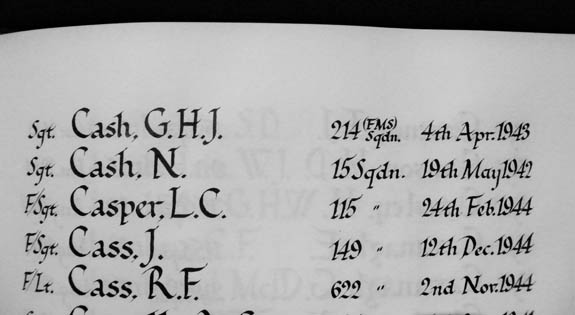 Sgt. Cash, G.H.J. 214 (FMS) Sqdn. 4th Apr. 1943
Sgt. Cash, N. 15 Sqdn. 19th May 1942
F/Sgt. Casper, L.C. 115 " 24th Feb. 1944
F/Sgt. Cass, J. 149 " 12th Dec. 1944
F/Lt. Cass, R.F. 622 " 2nd Nov. 1944